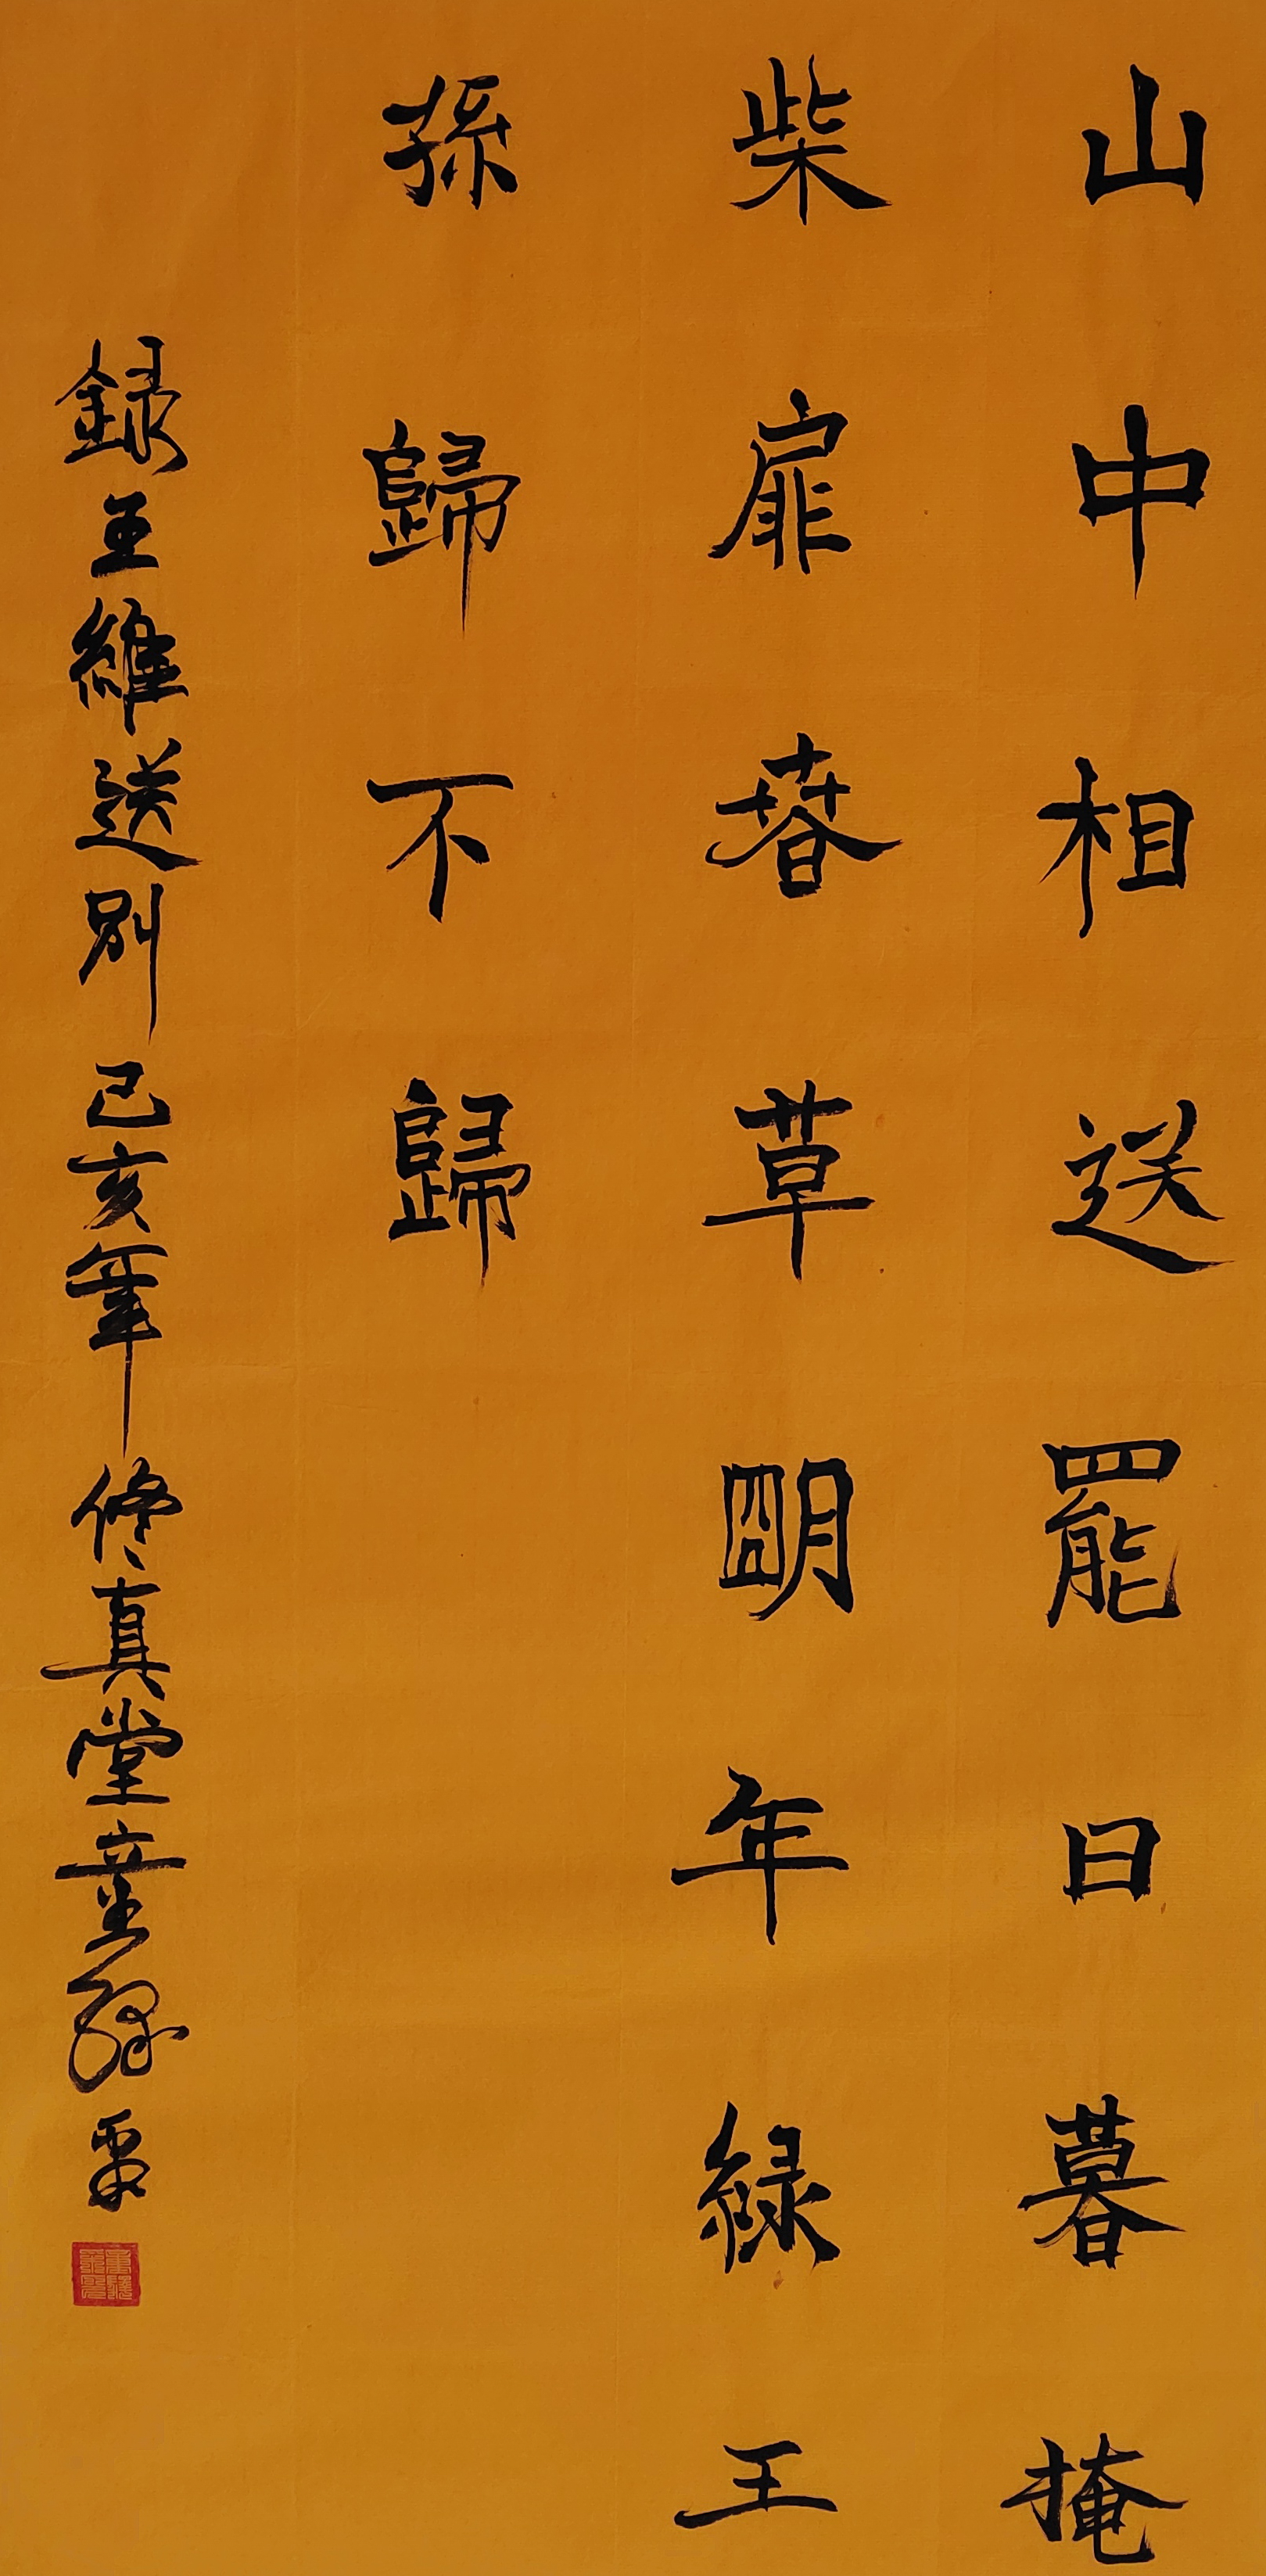 山中相送罷日暮掩
柴扉春草明年綠王
孫歸不歸
錄王維送別己亥年修真堂童